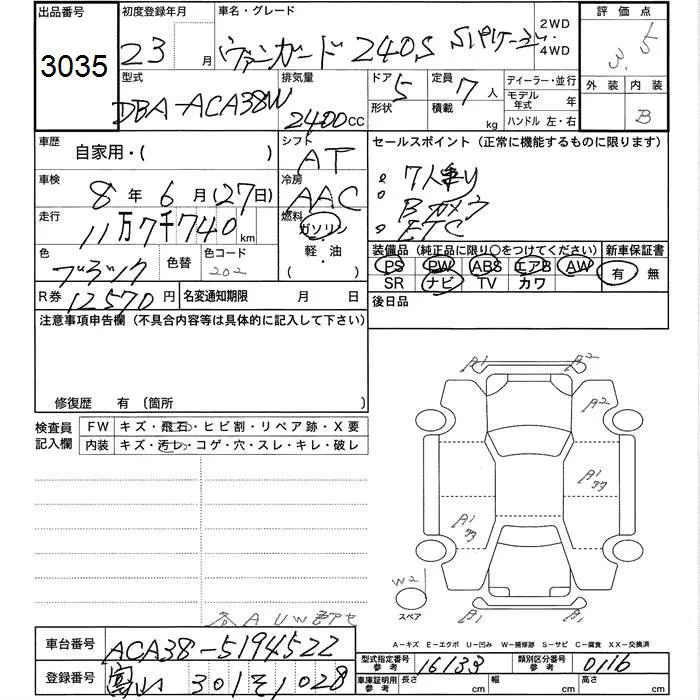 出品番号 3035
初度登録年月 23 月
車名・グレード ヴァンガード 240S Sパケージ
2WD
4WD
評価点 3.5
外装 内装 B
型式 DBA-ACA38W
排気量 2400cc
ドア形状 5
定員 7人
積載 kg
ディーラー・並行
モデル年式 年
ハンドル 左・右
車歴 自家用・( )
シフト AT
車検 8年6月(27日)
冷房 AAC
走行 11万7千740km
燃料 ガソリン・軽・油・( )
色 ブラック
色替
色コード 202
R券 12570円
名変通知期限 月 日
セールスポイント(正常に機能するものに限ります)
・7人乗り
・Bカメラ
・ETC
装備品(純正品に限り○をつけてください)
PS PW ABS エアB AW
SR ナビ TV カワ
新車保証書
有 無
後日品
注意事項申告欄(不具合内容等は具体的に記入して下さい)
修復歴 有 〔箇所
検査員記入欄
FW キズ・飛石・ヒビ割・リペア跡・X要
内装 キズ・汚レ・コゲ・穴・スレ・キレ・破レ
A1 A2
A2
A1
A1
W2
スペア
B1 B1
各AUWあせ
A-キズ E-エクボ U-凹み W-補修跡 S-サビ C-腐食 XX-交換済
車台番号 ACA38-5194522
登録番号 富山 301 そ 1028
型式指定番号 参考 16133
類別区分番号 参考 0116
車庫証明用 参考 長さ cm 幅 cm 高さ cm